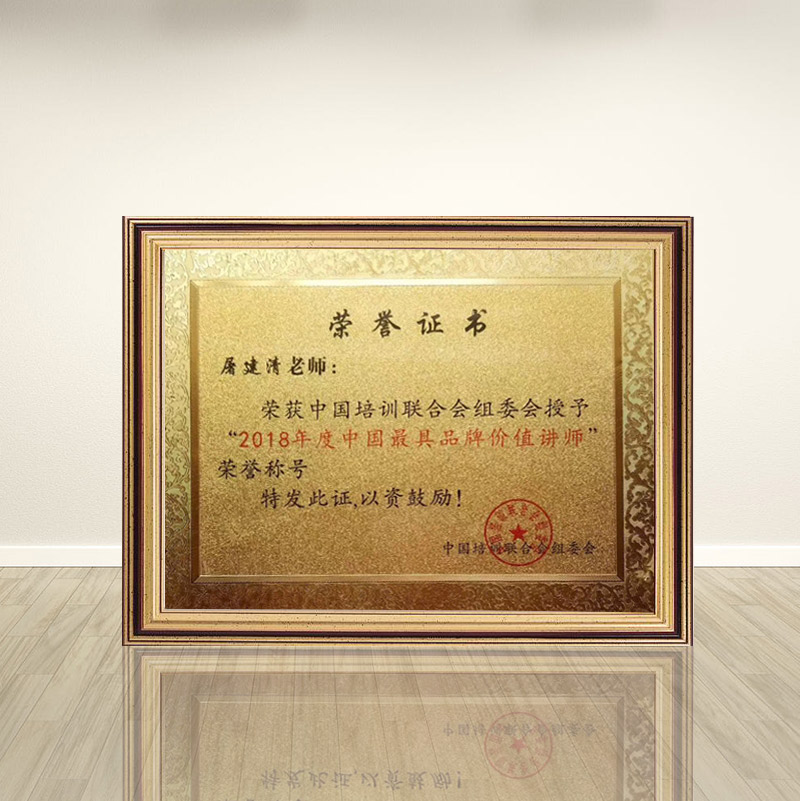 荣誉证书
屠建清老师：
荣获中国培训联合会组委会授予
“2018年度中国最具品牌价值讲师”
荣誉称号
特发此证,以资鼓励！
中国培训联合会组委会